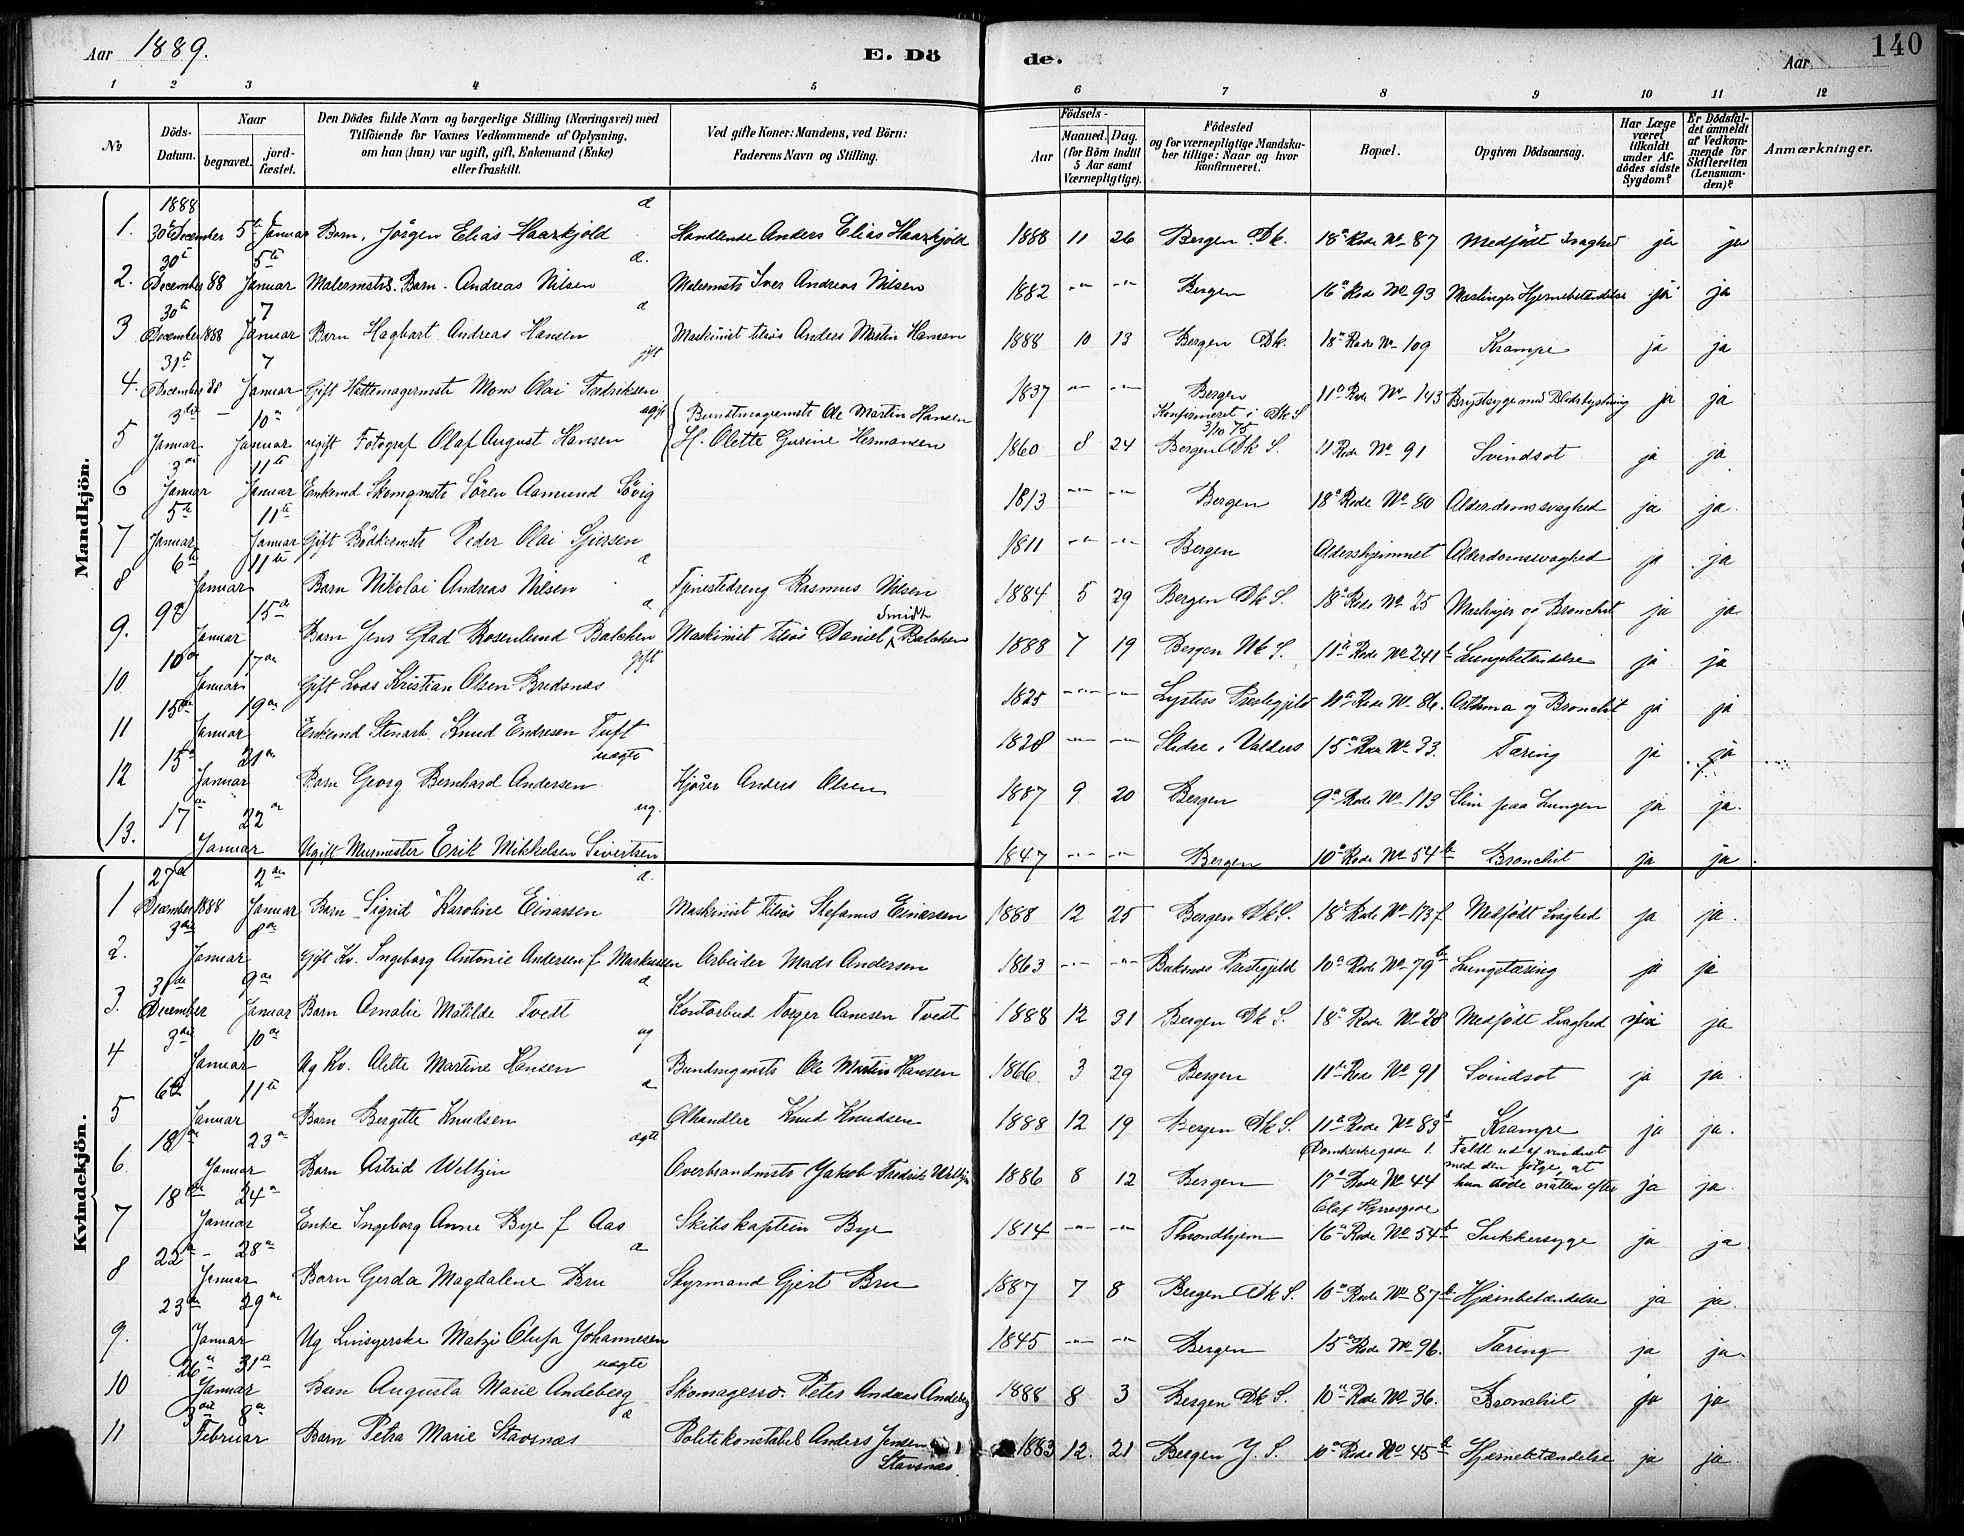 Aar 1889. E. Dö de. Aar 140
1 2 3 4 5 6 7 8 9 10 11 12
№ Döds-Datum. Naar begravet. jord-fæstet. Den Dödes fulde Navn og borgerlige Stilling (Næringsvei) med Tilföiende for Voxnes Vedkommende af Oplysning, om han (hun) var ugift, gift, Enkemand (Enke) eller fraskilt. Ved gifte Koner: Mandens, ved Börn: Faderens Navn og Stilling. Födsels- Aar Maaned. Dag. (for Börn indtil 5 Aar samt Værnepligtige). Födested og for værnepligtige Mandskaber tillige: Naar og hvor konfirmeret. Bopæl. Opgiven Dödsaarsag. Har Læge været tilkaldt under Afdödes sidste Sygdom? Er Dödsfaldet anmeldt af Vedkommende for Skifteretten (Lensmanden)? Anmærkninger.
Mandkjön.
1. 1888 30te December 5te Januar Barn, Jørgen Elias Haarkjold Handlende Anders Elias Haarkjold 1888 11 26 Bergen Dk. 18de Rode No 87 Medfødt Svaghed ja ja
2. 30te December 88 5te Januar Malermstrs. Barn. Andreas Nilsen Malermstr Iver Andreas Nilsen 1882 -"- -"- Bergen 16de Rode No 93 Mæslinger Hjernebetændelse ja ja
3 30te December 1888 7 Januar Barn Hagbart Andreas Hansen Maskinist Anders Martin Hansen 1888 10 13 Bergen Dk. 18de Rode No 109 Krampe ja ja
4. 31te December 88 7 Januar Gift Hattemagermstr Mons Olai Fredriksen gift 1837 -"- -"- Bergen 11de Rode No 143 Brystsyge med Blodstyrtning ja ja
5 3die Januar 10de Januar ugift Fotograf Olaf August Hansen ugift Bundtmagermstr Ole Martin Hansen H. Olette Gurine Hermansen 1860 8 24 Konfirmeret i Dk S 3/10 75 Bergen Dk S. 11 Rode No 91 Svindsot ja ja
6 3de Januar 11te Januar Enkemd Skomgmstr Søren Aamund Søvig 1813 -"- -"- Bergen 18de Rode No 80 Alderdomssvaghed ja ja.
7 5te Januar 11te Januar Gift Bødkermstr Peder Olai Giersen 1811 -"- -"- Bergen Aldershjemmet Alderdomssvaghed ja ja
8 6te Januar 11te Barn Nikolai Andreas Nilsen Tjenestedreng Rasmus Nilsen 1884 5 29 Bergen Dk S. 18de Rode No 25 Mæslinger og Bronchit ja ja
9. 9de Januar 15de Barn Jens Glad Rosenlund Balchen Maskinist Daniel Smidth Balchen 1888 7 19 Bergen Nk S. 11de Rode No 241b Lungebetændelse ja ja
10 10de Januar 17de Gift Kristian Olsen Bredsnæs gift 1825 -"- -"- Lysters Prestegjeld 10de Rode No 86. Asthma og Bronchit ja ja
11 15de Januar 19de Enkemd Stenarb. Knud Endresen Tuft 1828 -"- -"- Slidre i Valders 15de Rode No 33. Tæring ja ja
12 15de Januar 21de Barn Georg Bernhard Andersen uægte Kjører Anders Olsen 1887 9 20 Bergen 9de Rode No 113 Slim paa Lungen ja ja.
13. 17de Januar 22de Ugift Murmester Erik Mikkelsen Sivertsen ug. 1847 -"- -"- Bergen 10de Rode No 54b Bronchit ja ja.
Kvindekjön.
1 27de December 1888 2den Januar Barn Sigrid Karoline Einarsen Maskinist Stefanus Einarsen 1888 12 25 Bergen Dk S. 18de Rode No 173f Medfødt Svaghed ja ja.
2. 3die Januar 8de Gift Kv. Ingeborg Antonie Andersen f Markussen Arbeider Mads Andersen 1863 -"- -"- Buksnæs Prestegjeld 10de Rode No 79b Lungetæring ja ja
3. 31te December 9de Januar Barn Amalie Matilde Tvedt Kontorbud Torger Aanesen Tvedt 1888 12 31 Bergen Dk S. 18de Rode No 28 Medfødt Svaghed ja ja
4 3die Januar 10de Ug Kv. Olette Martine Hansen ug Bundmgmstr Ole Martin Hansen 1866 3 29 Bergen 11te Rode No 91 Svindsot ja ja.
5 6te Januar 11te Barn Bergitte Knudsen Ølhandler Knud Knudsen 1888 12 19 Bergen Dk S. 11de Rode No 83b Krampe ja ja.
6. 18de Januar 23de Barn Astrid Weltzin ægte Overbrandmstr Jakob Fredrik Weltzin 1886 8 12 Bergen Domkirkegade 1. 17de Rode No 44 Faldt ud af vinduet med den følge, at hun døde natten efter ja ja.
7 18de Januar 24de Enke Ingeborg Anne Bye f Aas Skibskaptein Bye 1814 -"- -"- Throndhjem Olaf Kyrresgade 16de Rode No 54b Sukkersyge ja ja.
8 22de Januar 28de Barn Gerda Magdalene Bru Styrmand Gjert Bru 1887 7 8 Bergen Dk S. 10de Rode No 87b Hjernebetændelse ja ja.
9. 23de Januar 29de Ug Linsyerske Matzi Olufa Johannesen 1845 -"- -"- Bergen 15de Rode No 96. Tæring ja ja.
10 26de Januar 31te Barn Augusta Marie Andeberg uægte Skomagersv. Peter Andreas Andeberg 1888 8 3 Bergen Dk S. 10de Rode No 36. Bronchit ja ja
11 3die Februar 8de Barn Petra Marie Stavsnæs Politikonstabel Anders Jensen Stavsnæs. 1883 12. 21 Bergen J. S. 10de Rode No 45b Hjernebetændelse ja ja.